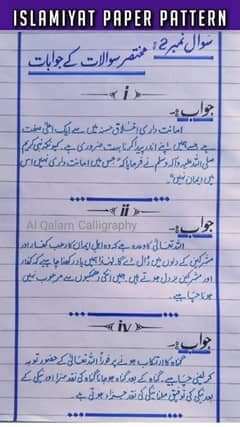 ISLAMIYAT PAPER PATTERN
سوال نمبر 2:
مختصر سوالات کے جوابات
i
جواب:
امانت داری اخلاقِ حسنہ میں سے ایک اعلیٰ صفت
ہے جسے ہمیں اپنے اندر پیدا کرنا بہت ضروری ہے۔ کیونکہ نبی کریم
صلی اللہ علیہ وآلہ وسلم نے فرمایا کہ "جس میں امانت داری نہیں اس
میں ایمان نہیں"
Al Qalam Calligraphy
ii
جواب:
اللہ تعالیٰ کا وعدہ ہے کہ وہ اہلِ ایمان کا رعب کفار اور
مشرکین کے دلوں میں ڈال دے گا۔ لہٰذا ہمیں یاد رکھنا چاہیے کہ کفار
اور مشرکین بزدل ہوتے ہیں۔ ہمیں انکی دھمکیوں سے مرعوب نہیں
ہونا چاہیے۔
iv
جواب:
گناہ کا ارتکاب ہونے پر فوراً اللہ تعالیٰ کے حضور توبہ
کر لینی چاہیے۔ گناہ کے بعد گناہ ہو جانا گناہ کی نقد سزا اور نیکی کے
بعد نیکی کی توفیق ملنا نیکی کی نقد جزاء ہوتی ہے۔